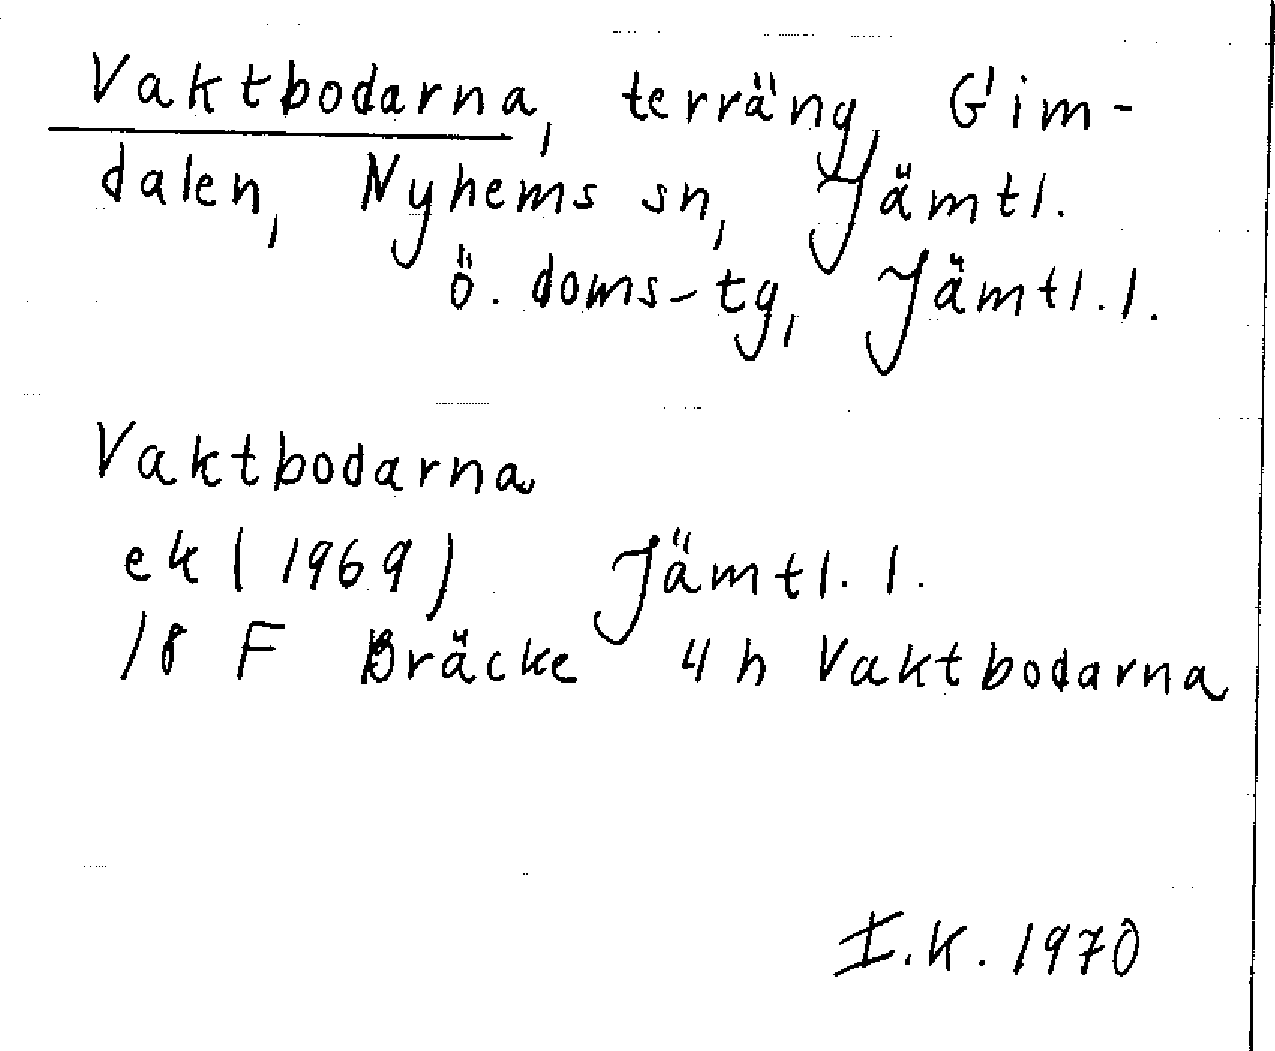 Vaktbodarna, terräng, Gim-
dalen, Nyhems sn, Jämtl.
ö. doms-tg, Jämtl. l.
Vaktbodarna
ek (1969) Jämtl. l.
18 F Bräcke 4 h Vaktbodarna
I.K. 1970